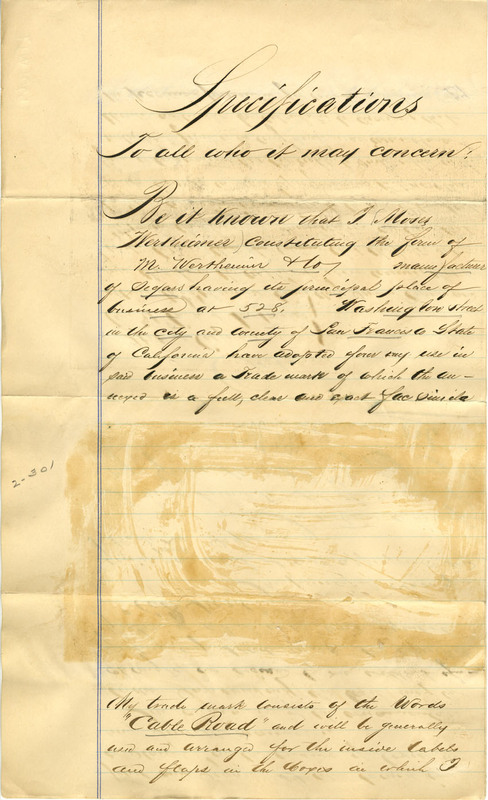 Specifications
To all who it may concern:
Be it known that I Moses
Wertheimer Constituting the firm of
M. Wertheimer & Co, manufacturer
of Segars having its principal place of
business at 528, Washington street
in the city and county of San Francisco State
of California have adopted for my use in
said business a Trade mark of which the an-
nexed is a full, clear and exact fac simile
2-301
My trade mark consists of the Words
"Cable Road" and will be generally
used and arranged for the inside labels
and flaps in the boxes in which I